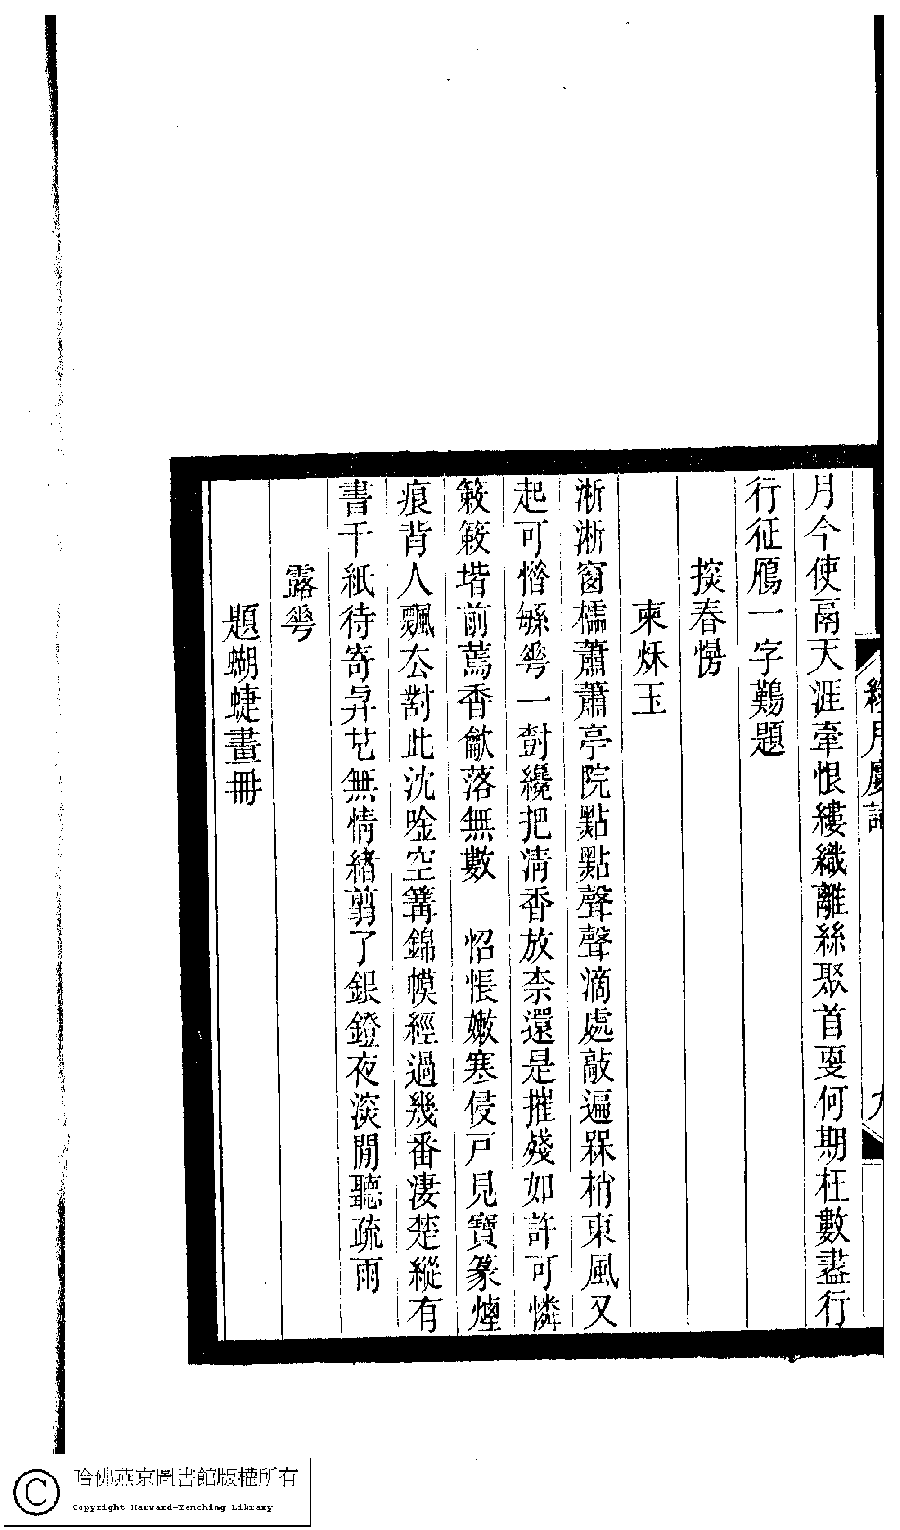 月今使鬲天涯牽恨縷織離絲聚首更何期枉數盡行
行征鴈一字鷬題
掞春慢
柬秌玉
淅淅窗檽蕭蕭亭院點點聲聲滴處敲遍槑梢東風又
起可憯緐雩一尌纔把清香放柰還是摧殘如許可憐
簌簌堦前蔫香㱃落無數　怊悵嫩寒侵戸見寶篆煙
痕背人飄厺對此沈唫空篝錦幙經過幾番淒楚縱有
書千紙待寄昇㐌無情緒剪了銀鐙夜淡閒聽疏雨
露雩
題蝴蜨畫冊
月慶
九
哈佛燕京圖書館版權所有
Copyright Harvard-Yenching Library